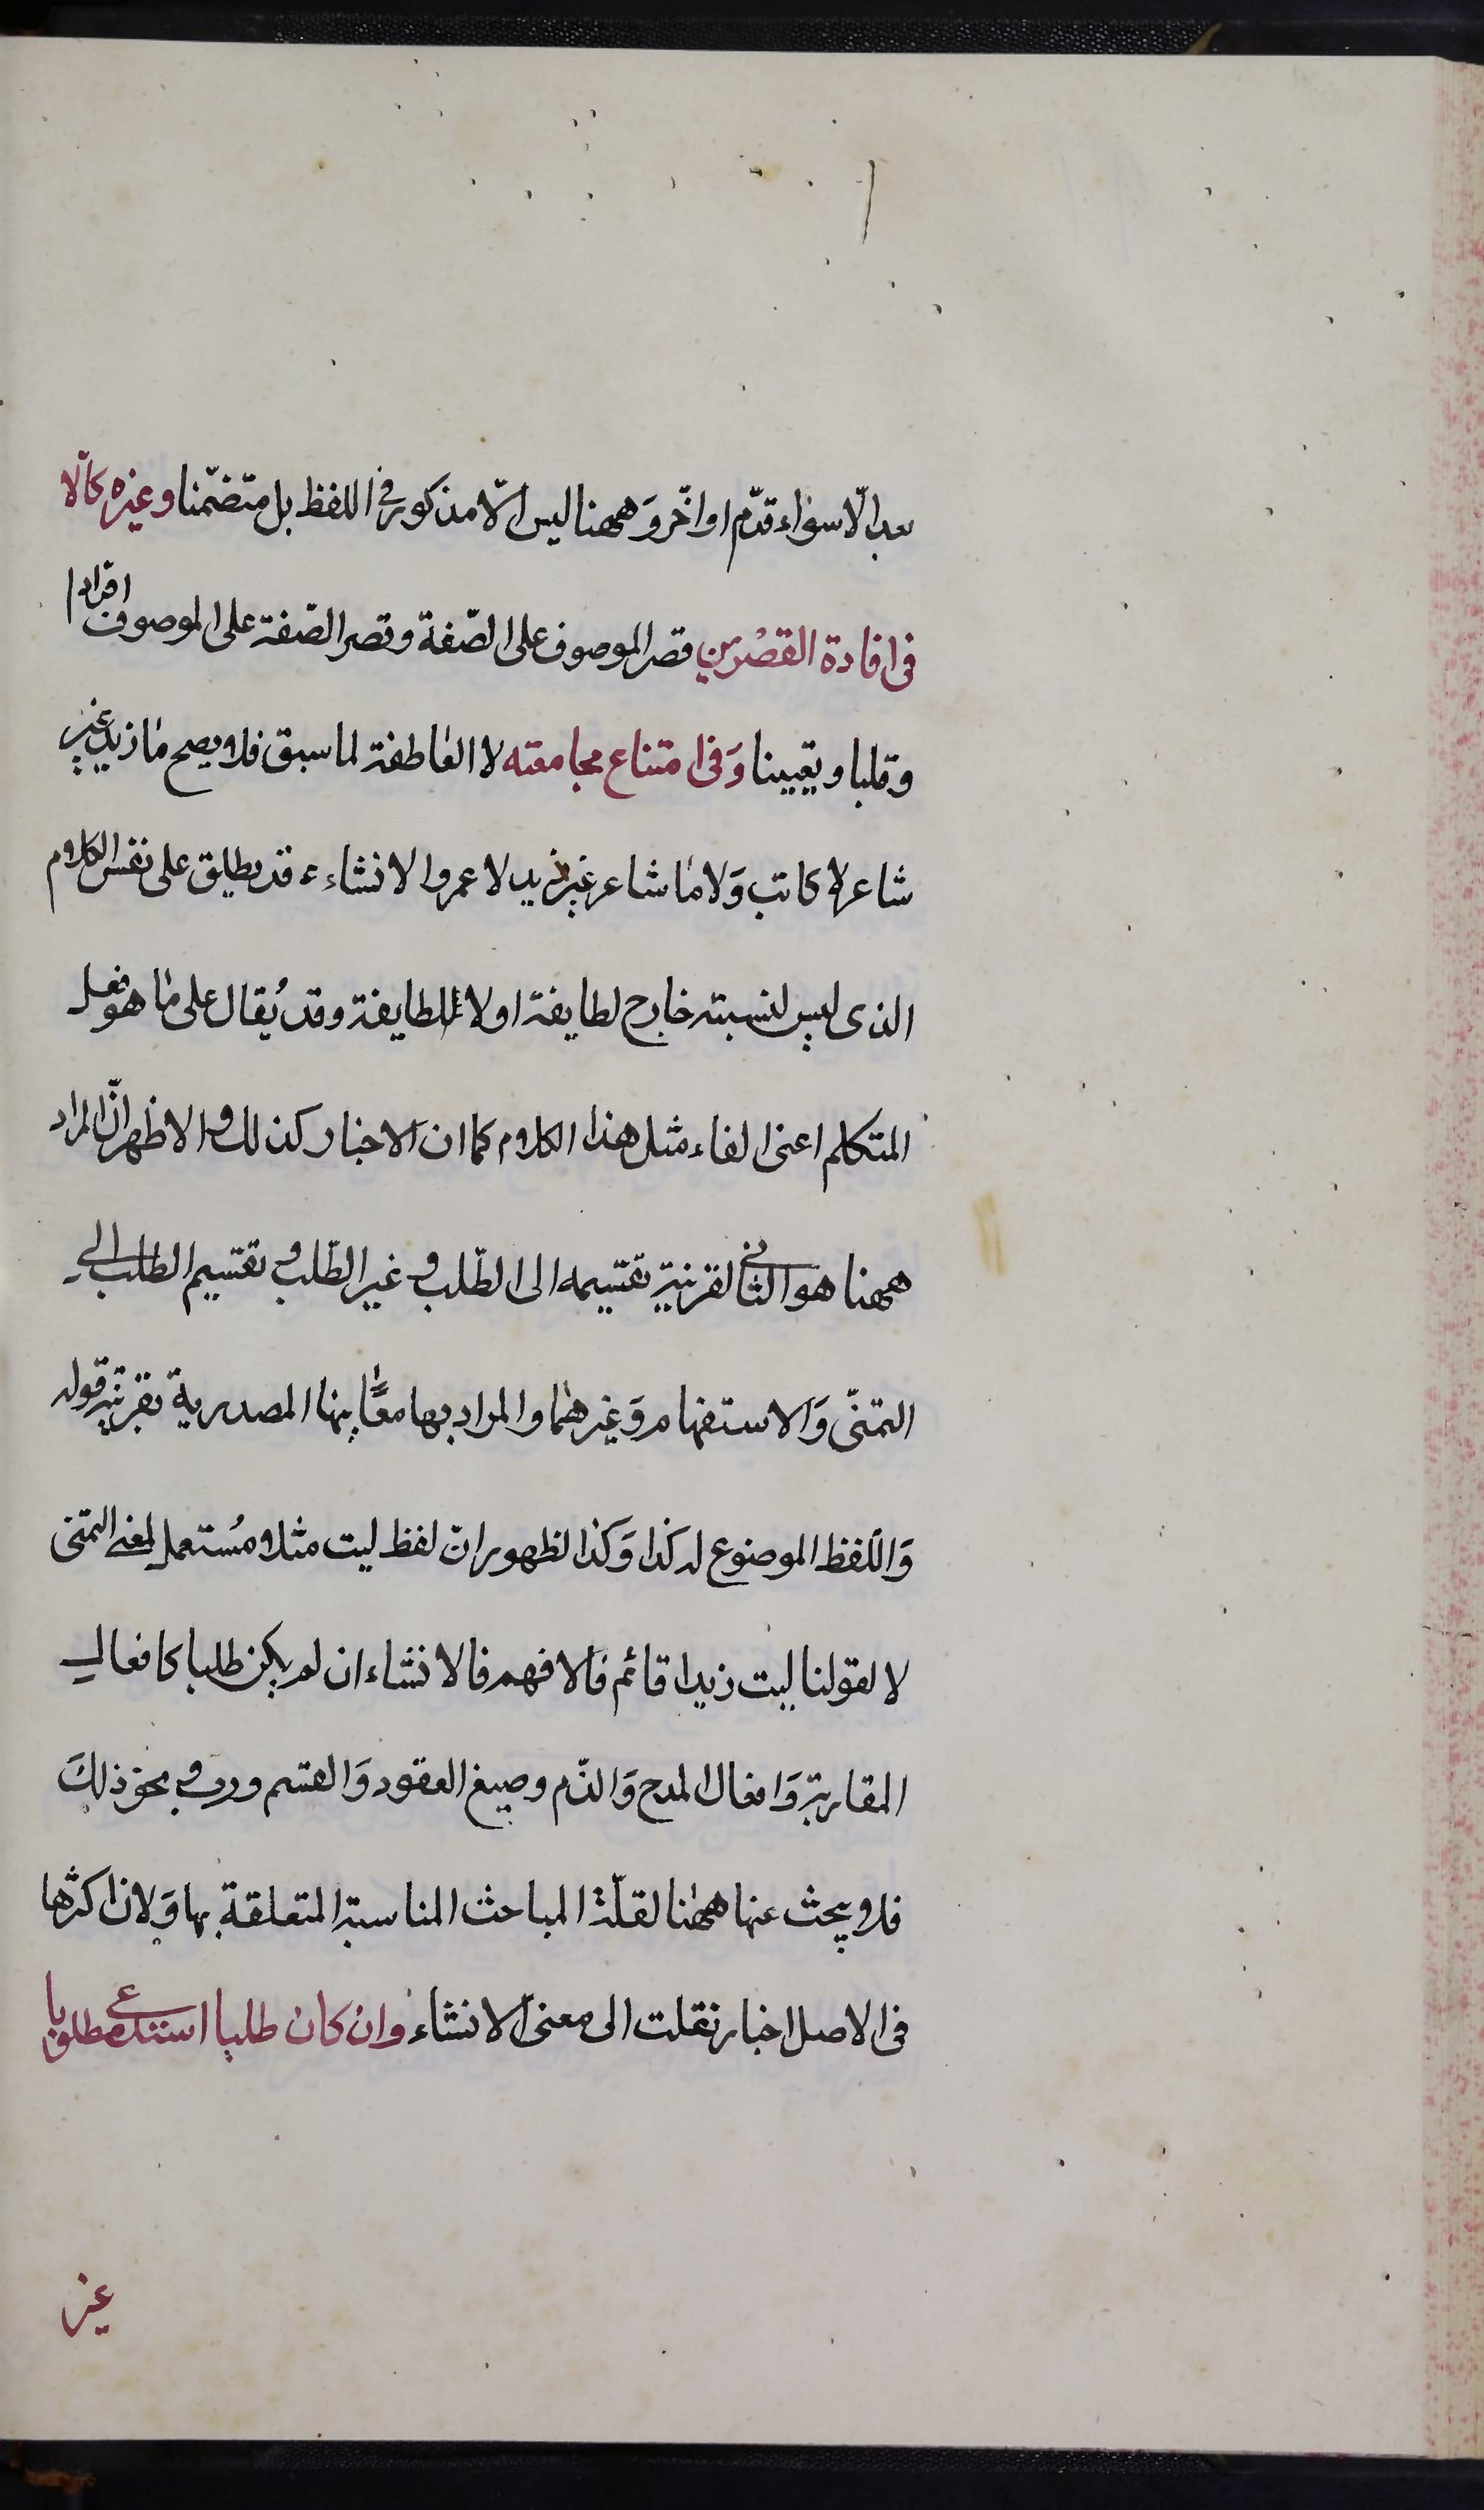 بعد الّا سواء قدّم او اخّر وَههنا ليس الّا مذكور فى اللفظ بل متضمّنا وغيره كالّا
فى افادة القصْرين قصر الموصوف على الصّفة وقصر الصّفة على الموصوف افرادا
وقلبا وتعيينا وَفى امتناع مجامعته لا العاطفة لما سبق فلا يصح ما زيد غير
شاعر لا كاتب وَلا ما شاعر غير زيد لا عمرو الانشاء ء قد يطلق على نفس الكلام
الذى ليس لنسبته خارج تطابقه اولا تطابقه وقد يُقال على ما هو فعل
المتكلم اعنى القاء مثل هذا الكلام كما ان الاخبار كذلك والاظهر انّ المراد
ههنا هو الثانى لقرينة تقسيمه الى الطّلب و غير الطّلب و تقسيم الطلب الى
التمنّى وَالاستفهام وَغيرهما والمراد بها معانيها المصدرية بقرينة قوله
وَاللّفظ الموضوع له كذا وَكذا لظهور انّ لفظ ليت مثلا مُستعمل لمعنى التمنى
لا لقولنا ليت زيدا قائم فالافهم فالانشاء ان لم يكن طلبا كافعال
المقاربة وَافعال المدح وَالذّم وصيغ العقود وَالقسم ورب و نحو ذلكَ
فلا يبحث عنها ههنا لقلّة المباحث المناسبة المتعلقة بها وَلان اكثرها
فى الاصل اخبار نقلت الى معنى الانشاء وان كان طلبا استدعى مطلوبا
غير